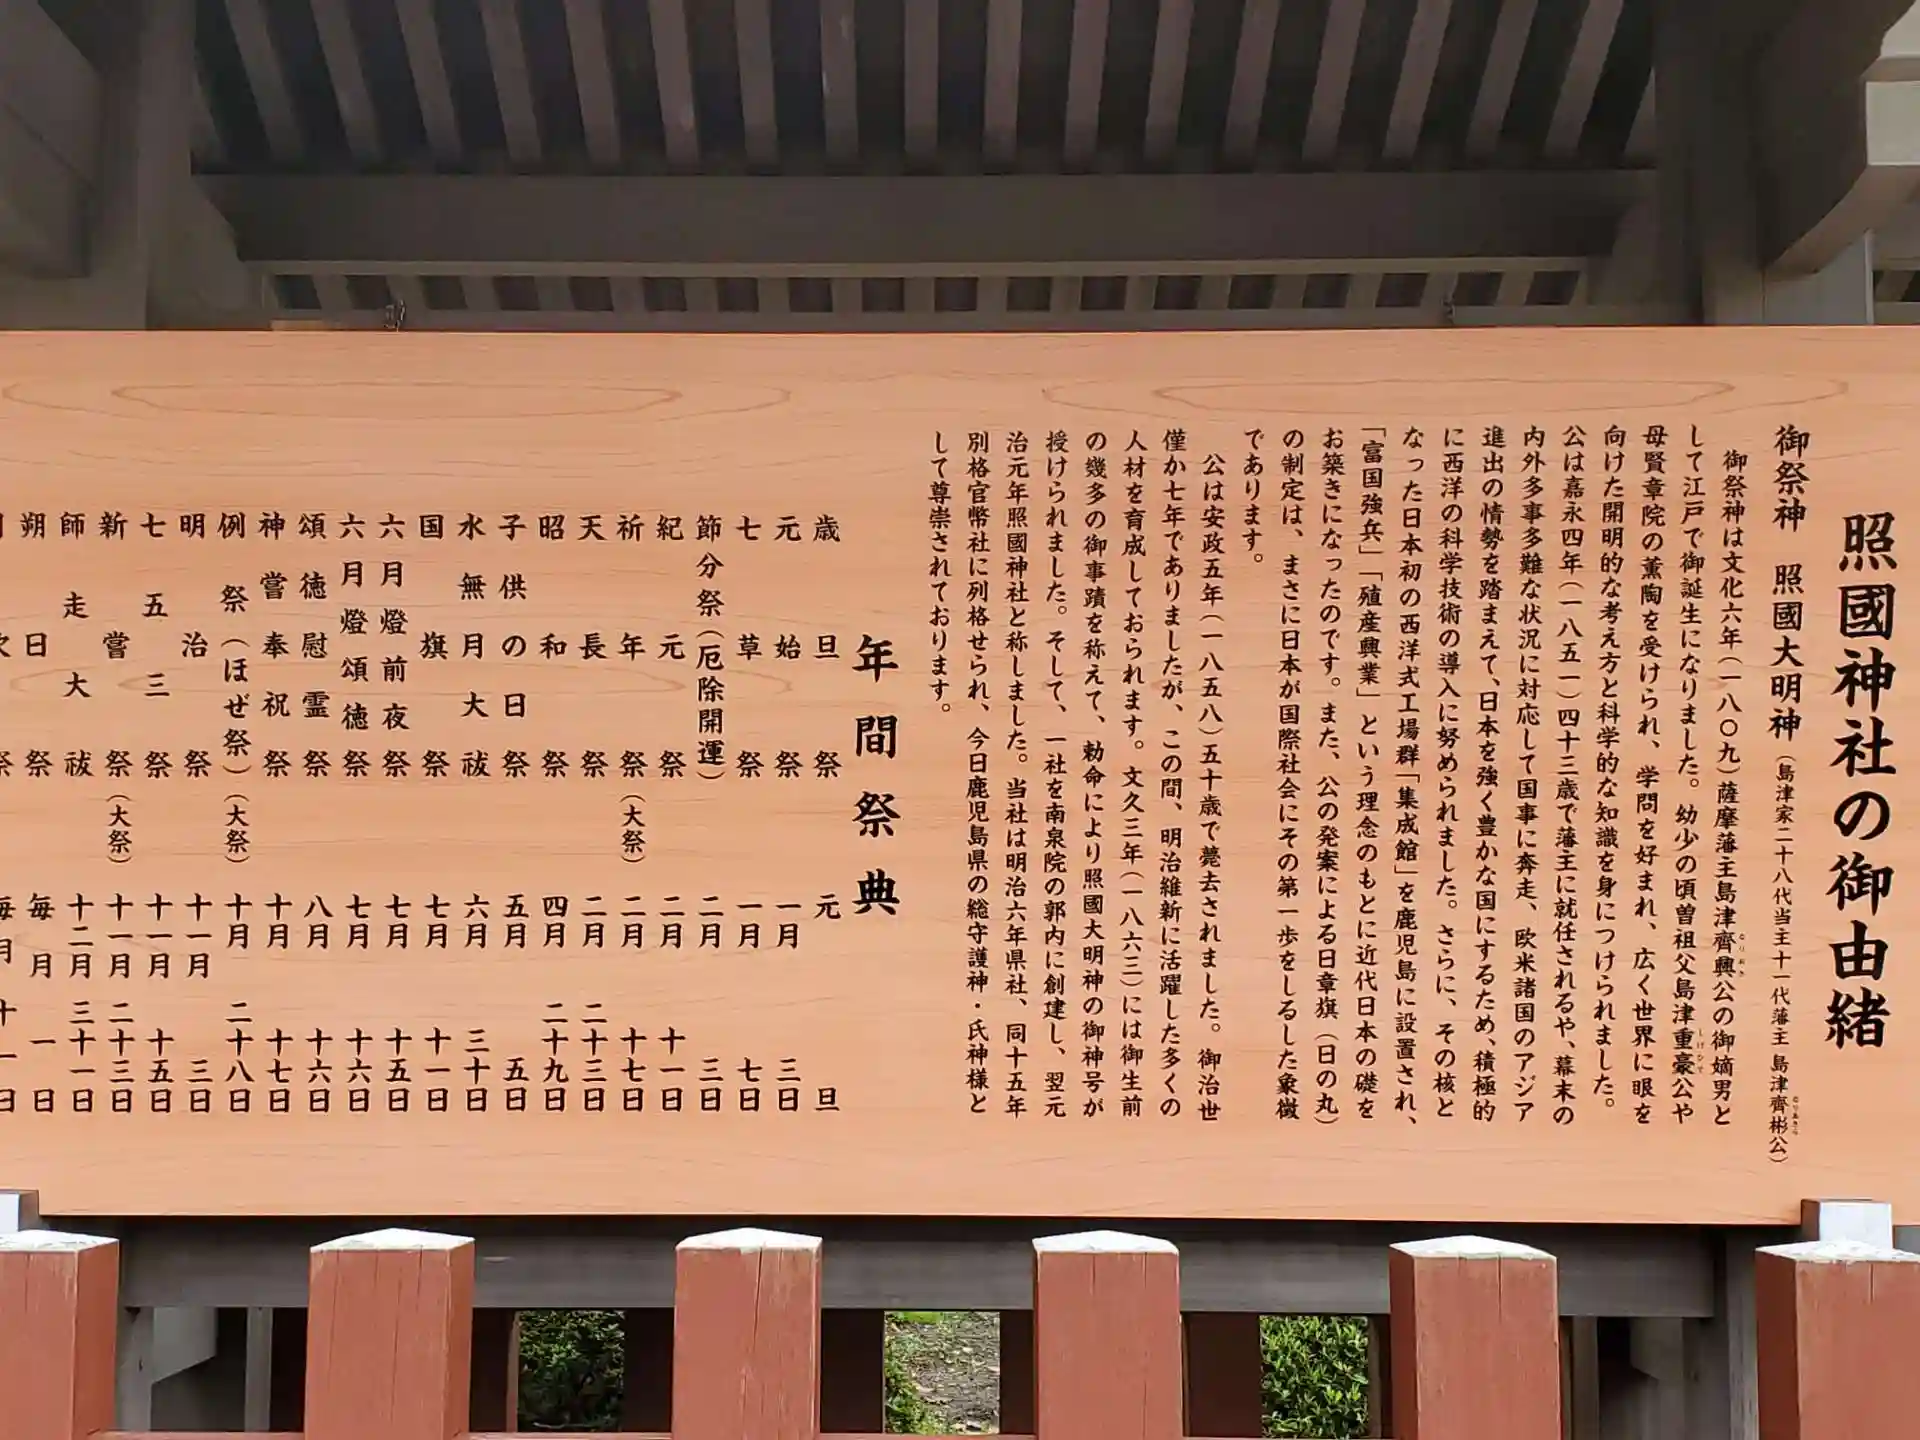 照國神社の御由緒
御祭神 照國大明神(島津家二十八代当主十一代藩主 島津齊彬公)
なりあきら
御祭神は文化六年(一八〇九)薩摩藩主島津齊興公の御嫡男と
なりおき
して江戸で御誕生になりました。幼少の頃曽祖父島津重豪公や
しげひで
母賢章院の薫陶を受けられ、学問を好まれ、広く世界に眼を
向けた開明的な考え方と科学的な知識を身につけられました。
公は嘉永四年(一八五一)四十三歳で藩主に就任されるや、幕末の
内外多事多難な状況に対応して国事に奔走、欧米諸国のアジア
進出の情勢を踏まえて、日本を強く豊かな国にするため、積極的
に西洋の科学技術の導入に努められました。さらに、その核と
なった日本初の西洋式工場群「集成館」を鹿児島に設置され、
「富国強兵」「殖産興業」という理念のもとに近代日本の礎を
お築きになったのです。また、公の発案による日章旗(日の丸)
の制定は、まさに日本が国際社会にその第一歩をしるした象徴
であります。
公は安政五年(一八五八)五十歳で薨去されました。御治世
僅か七年でありましたが、この間、明治維新に活躍した多くの
人材を育成しておられます。文久三年(一八六三)には御生前
の幾多の御事蹟を称えて、勅命により照國大明神の御神号が
授けられました。そして、一社を南泉院の郭内に創建し、翌元
治元年照國神社と称しました。当社は明治六年県社、同十五年
別格官幣社に列格せられ、今日鹿児島県の総守護神・氏神様と
して尊崇されております。
年間祭典
歳旦祭 元旦
元始祭 一月三日
七草祭 一月七日
節分祭(厄除開運) 二月三日
紀元祭 二月十一日
祈年祭(大祭) 二月十七日
天長祭 二月二十三日
昭和祭 四月二十九日
子供の日祭 五月五日
水無月大祓 六月三十日
国旗祭 七月十一日
六月燈前夜祭 七月十五日
六月燈頌徳祭 七月十六日
頌徳慰霊祭 八月十六日
神嘗奉祝祭 十月十七日
例祭(ほぜ祭)(大祭) 十月二十八日
明治祭 十一月三日
七五三祭 十一月十五日
新嘗祭(大祭) 十一月二十三日
師走大祓 十二月三十一日
朔日祭 毎月一日